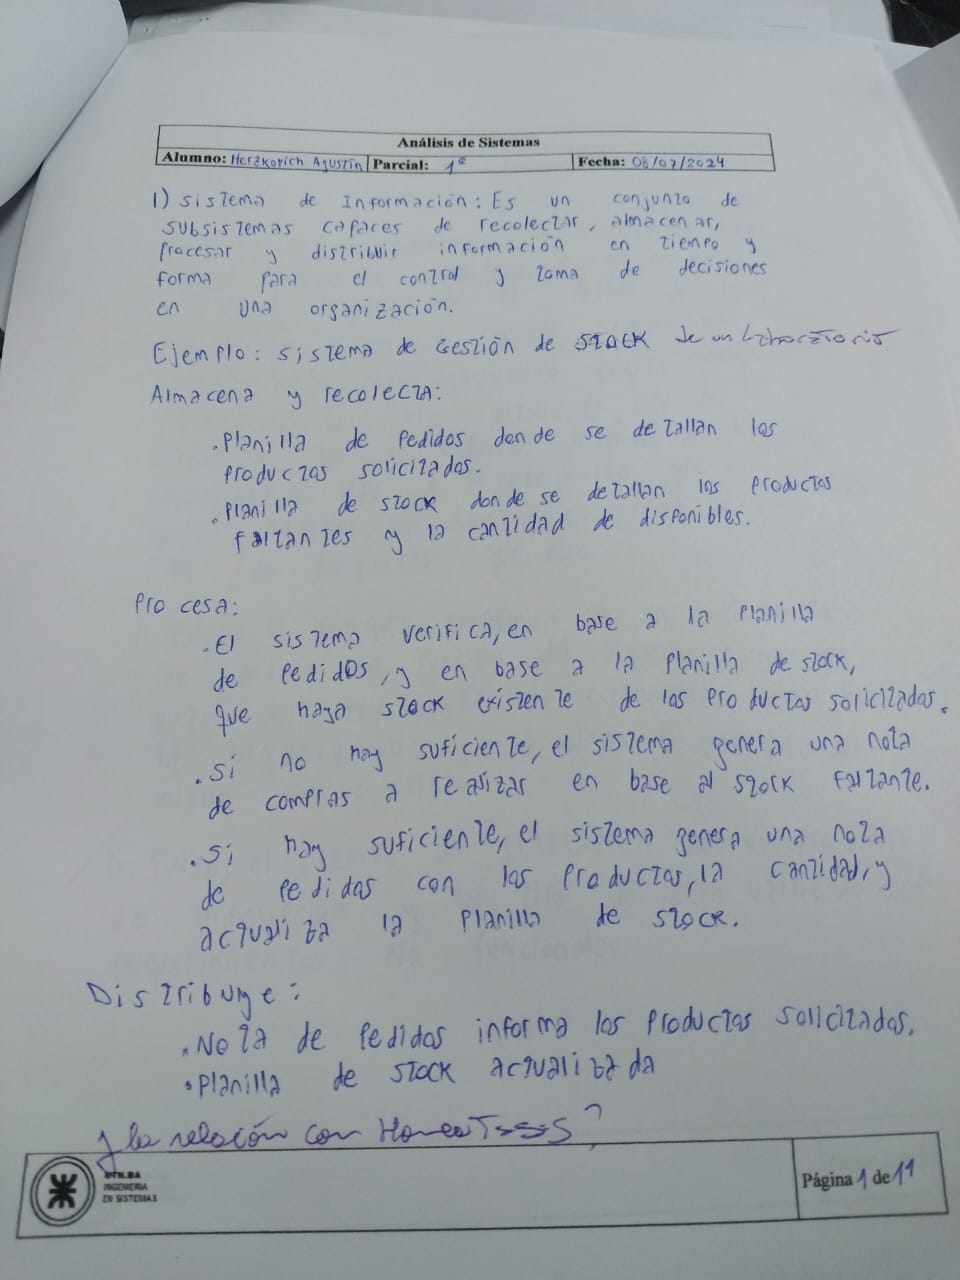 Análisis de Sistemas
Alumno: Herzkovich Agustín Parcial: 1º Fecha: 08/07/2024
1) Sistema de Información: Es un conjunto de
subsistemas capaces de recolectar, almacenar,
procesar y distribuir información en tiempo y
forma para el control y toma de decisiones
en una organización.
Ejemplo: sistema de Gestión de STOCK de un laboratorio
Almacena y recolecta:
. Planilla de Pedidos donde se detallan los
productos solicitados.
. Planilla de stock donde se detallan los productos
faltantes y la cantidad de disponibles.
Procesa:
. El sistema verifica, en base a la planilla
de pedidos, y en base a la planilla de stock,
que haya stock existente de los productos solicitados.
. Si no hay suficiente, el sistema genera una nota
de compras a realizar en base al stock faltante.
. Si hay suficiente, el sistema genera una nota
de pedidos con los productos, la cantidad, y
actualiza la planilla de stock.
Distribuye:
. Nota de Pedidos informa los productos solicitados.
. Planilla de stock actualizada
y la relación con
UTN.BA
INGENIERIA
EN SISTEMAS
Página 1 de 11